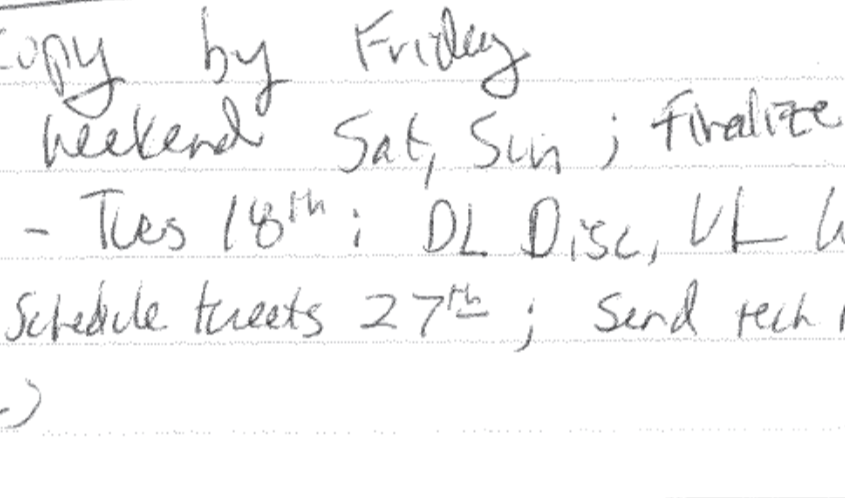 copy by Friday
weekend Sat, Sun ; finalize
- Tues 18th ; DL Disc, VL
Schedule tweets 27th ; Send tech
)